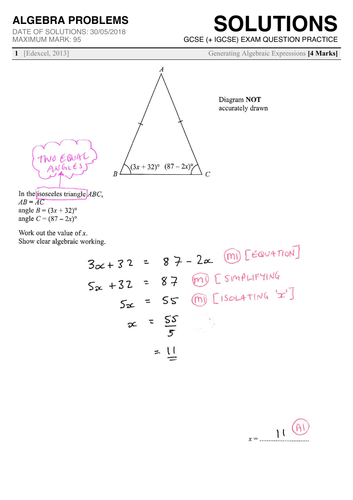 ALGEBRA PROBLEMS
DATE OF SOLUTIONS: 30/05/2018
MAXIMUM MARK: 95
SOLUTIONS
GCSE (+ IGCSE) EXAM QUESTION PRACTICE
1 [Edexcel, 2013] Generating Algebraic Expressions [4 Marks]
A
Diagram NOT
accurately drawn
TWO EQUAL
ANGLES
(3x + 32)° (87 – 2x)°
B C
In the isosceles triangle ABC,
AB = AC
angle B = (3x + 32)°
angle C = (87 – 2x)°
Work out the value of x.
Show clear algebraic working.
3x + 32 = 87 - 2x M1 [EQUATION]
5x + 32 = 87 M1 [SIMPLIFYING
5x = 55 M1 [ISOLATING 'x']
x = 55
5
= 11
x = 11 A1